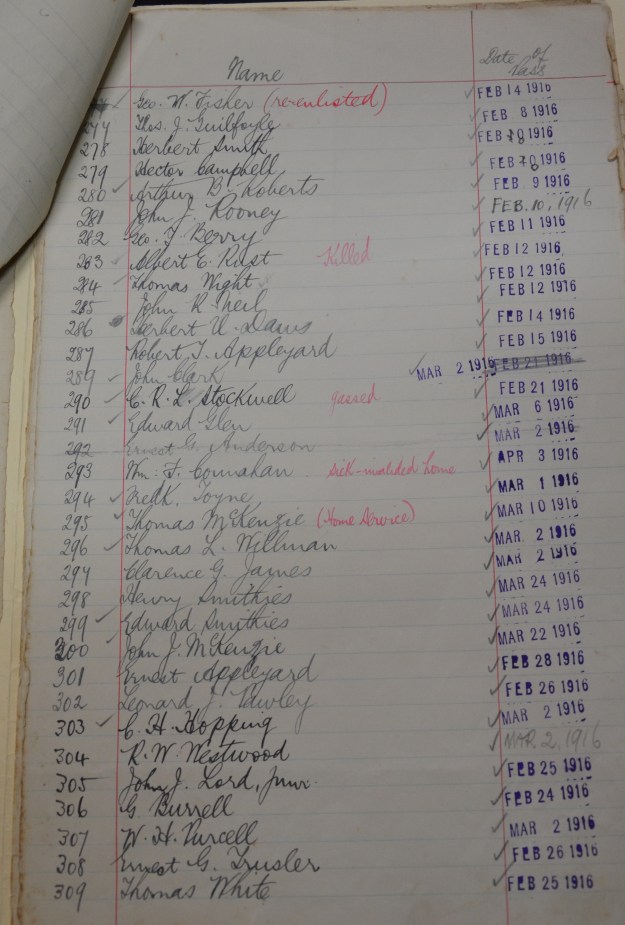 Name Date of Pass
Geo. W. Fisher (re-enlisted) FEB 14 1916
277 Thos. J. Guilfoyle FEB 8 1916
278 Herbert Smith FEB 1916
279 Hector Campbell FEB 1916
280 Arthur B. Roberts FEB 9 1916
281 John J. Rooney FEB. 10, 1916
282 Geo. T. Berry FEB 11 1916
283 Albert E. Rust Killed FEB 12 1916
284 Thomas Wight FEB 12 1916
285 John R. Neil FEB 12 1916
286 Herbert V. Daws FEB 14 1916
287 Robert T. Appleyard FEB 15 1916
289 John Clark MAR 2 1916 FEB 21 1916
290 C. R. L. Stockwell gassed FEB 21 1916
291 Edward Glen MAR 6 1916
292 Ernest G. Anderson MAR 2 1916
293 Wm. F. Counahan sick-invalided home APR 3 1916
294 Fredk. Toyne MAR 1 1916
295 Thomas McKenzie (Home Service) MAR 10 1916
296 Thomas L. Willman MAR 2 1916
297 Clarence G. Jaynes MAR 2 1916
298 Henry Smithies MAR 24 1916
299 Edward Smithies MAR 24 1916
300 John J. McKenzie MAR 22 1916
301 Ernest Appleyard FEB 28 1916
302 Leonard J. Pawley FEB 26 1916
303 C. H. Hopping MAR 2 1916
304 R. W. Westwood MAR 2, 1916
305 John J. Lord, Junr. FEB 25 1916
306 G. Burrell FEB 24 1916
307 W. H. Purcell MAR 2 1916
308 Ernest G. Trusler FEB 26 1916
309 Thomas White FEB 25 1916